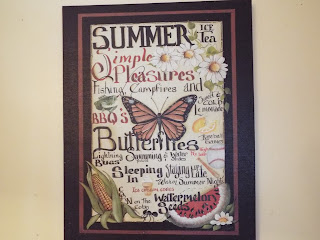 SUMMER
ICE
Tea
Simple
Pleasures
Fishing, Campfires and
BBQ's
Lemonade
Butterflies
Baseball
Games
Lightning
Bugs
Swimming
Water
Slides
Sleeping
In
Staying up
Late
Warm Summer Nights
Ice cream cones
Watermelon
Seeds
Corn on The
Cob